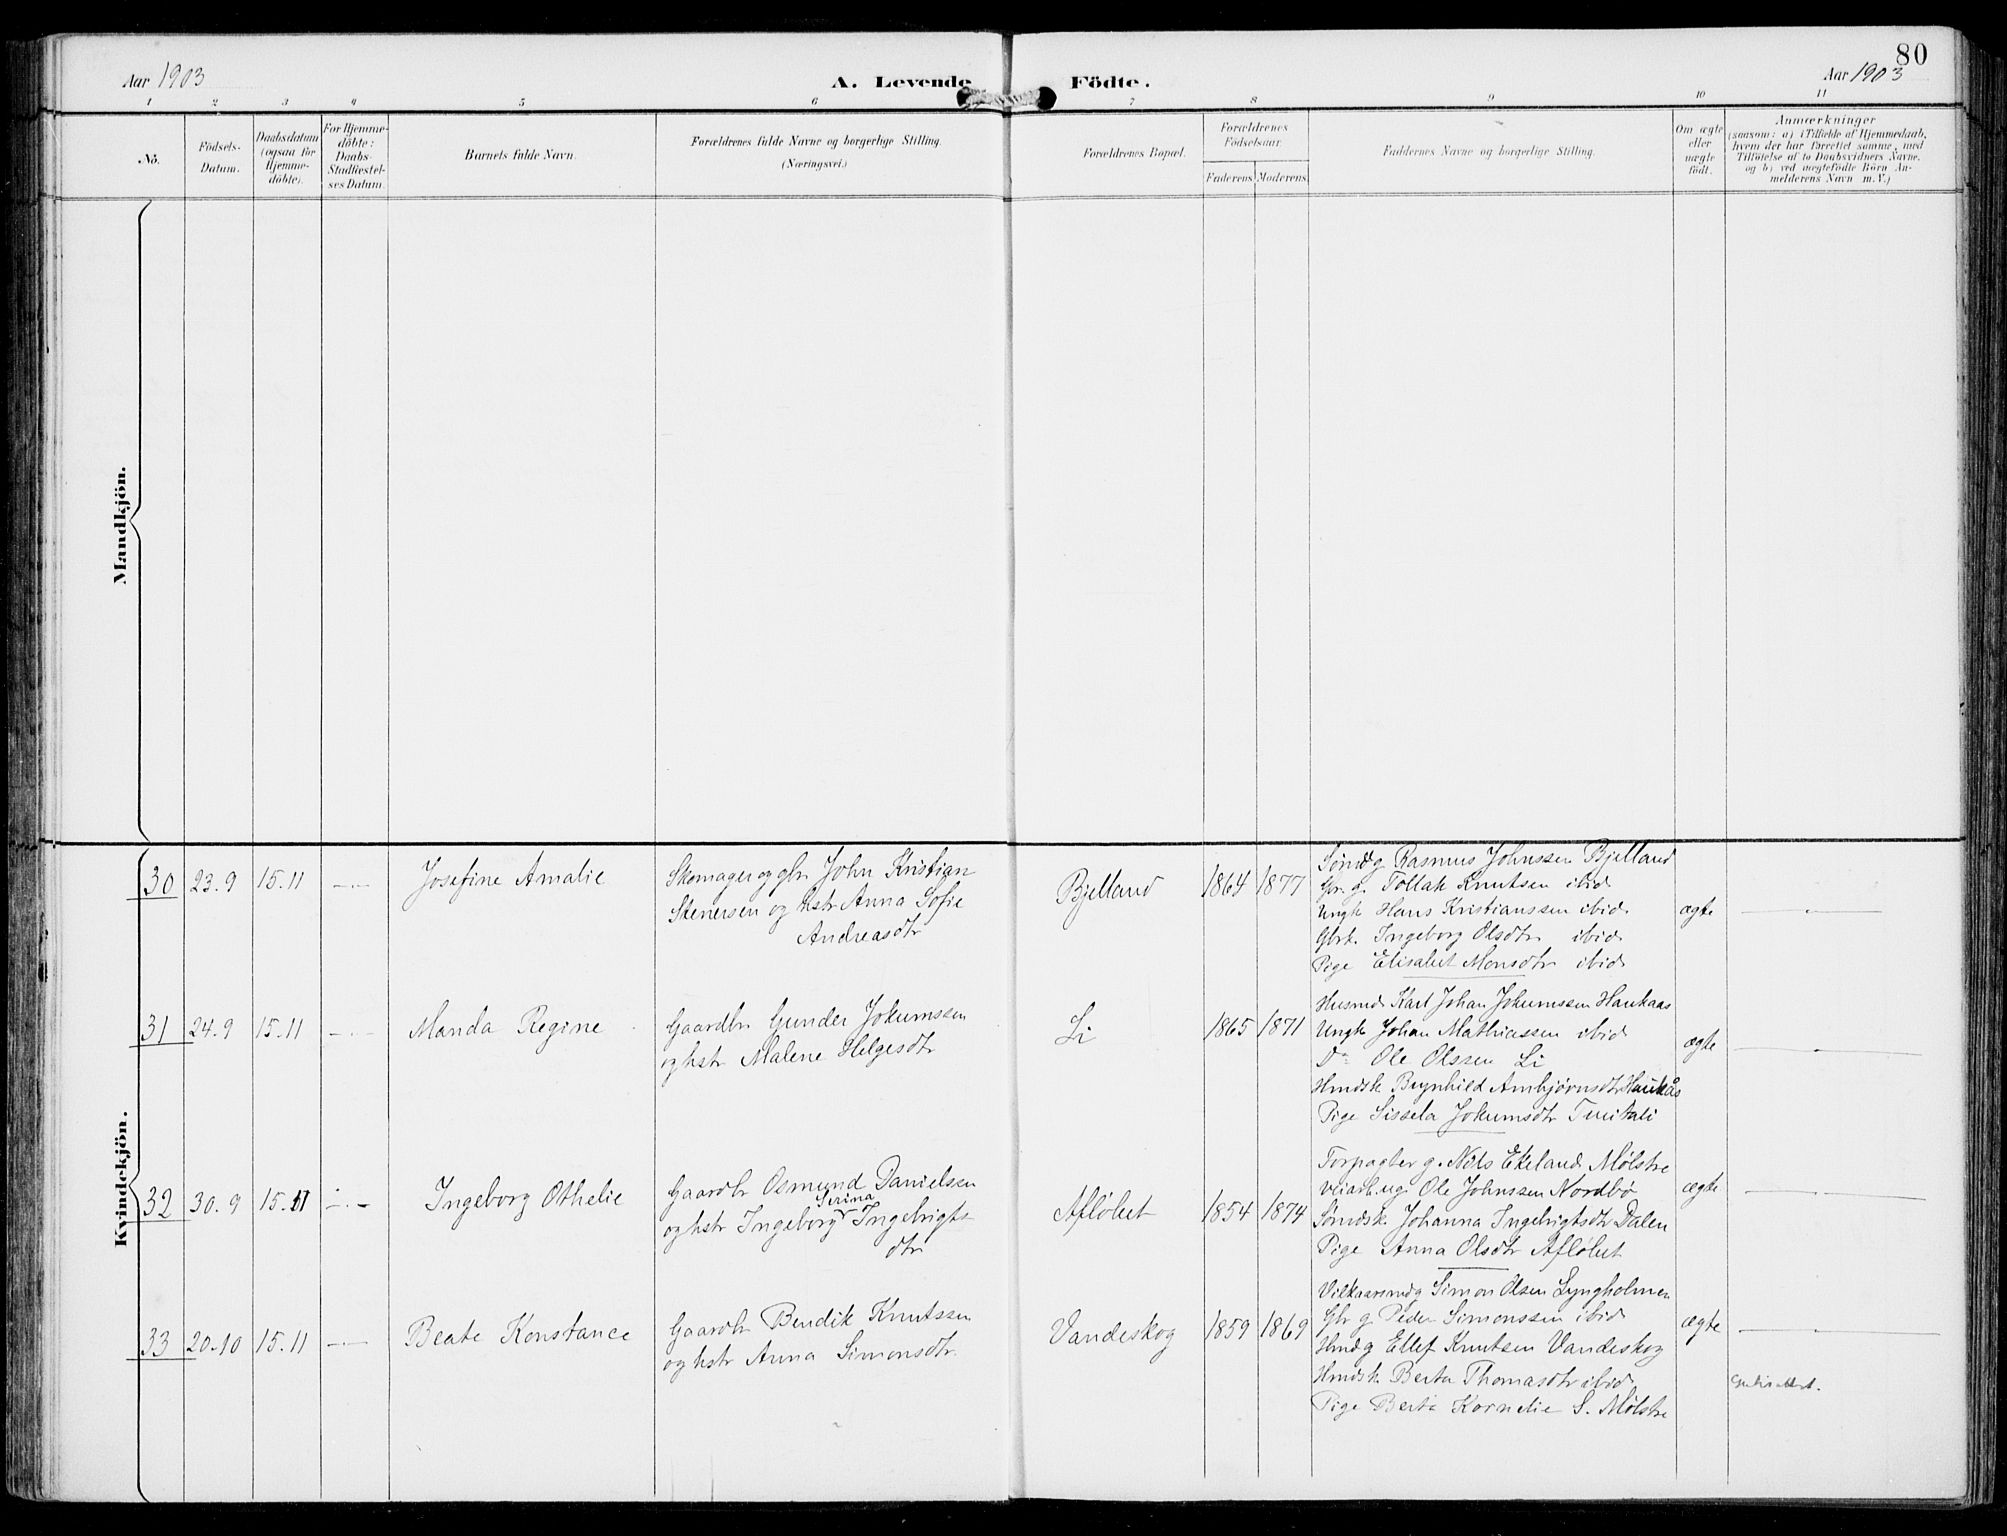 80
Aar 1903
A. Levende Födte.
Aar 1903
1 2 3 4 5 6 7 8 9 10 11
No.
Födsels-
Datum.
Daabsdatum
(ogsaa for
Hjemme-
döbte).
For Hjemme-
döbte:
Daabs-
Stadfæstel-
ses Datum.
Barnets fulde Navn.
Forældrenes fulde Navne og borgerlige Stilling.
(Næringsvei.)
Forældrenes Bopæl.
Forældrenes
Födselsaar.
Faderens. Moderens.
Faddernes Navne og borgerlige Stilling.
Om ægte
eller
uægte
født.
Anmærkninger
(saasom: a) i Tilfælde af Hjemmedaab,
hvem der har forrettet samme, med
Tilföielse af to Daabsvidners Navne.
og b) ved uægtefödte Börn An-
melderens Navn m. V.)
Mandkjön.
Kvindekjön.
30 23.9 15.11 Josefine Amalie
Skomager og gbr John Kristian
Stenersen og hstr Anna Sofie
Andreasdtr
Bjelland 1864 1877
Sömdg Rasmus Johnssen Bjelland
Gbr. g. Tollak Knutsen ibid
Ungk Hans Kristianssen ibid.
Gbrk. Ingeborg Olsdtr. ibid
Pige Elisabet Monsdtr ibid
ægte
31 24.9 15.11 Manda Regine
Gaardbr Gunder Jokumssen
og hstr Malene Helgesdtr
Li 1865 1871
Husmd Karl Johan Jokumssen Haukaas
Ungk Johan Mathiassen ibid
Do Ole Olssen Li
Hmdsk Brynhild Ambjørnsdtr Haukås
Pige Sissela Jokumsdtr Tuitali
ægte
32 30.9 15.11 Ingeborg Othelie
Gaardbr Osmund Danielssen
Serina
og hstr Ingeborg Ingebrigts
dtr
Afløbet 1854 1874
Forpagter g. Nils Ekeland Mølstre
Veiarb. ug. Ole Johnssen Nordbø
Sømdsk. Johanna Ingebrigtsdtr Dalen
Pige Anna Olsdtr Afløbet
ægte
33 20.10 15.11 Beate Konstance
Gaardbr Bendik Knutssen
og hstr Anna Simonsdtr
Vandeskog 1859 1869
Vilkaarsmdg Simon Olsen Lyngholmen
Gbr g. Peder Simonssen ibid
Hmdg Ellef Knutsen Vandeskog
Hmdsk Berta Thomasdtr ibid.
Pige Berta Kornelie S. Mølstre
ægte